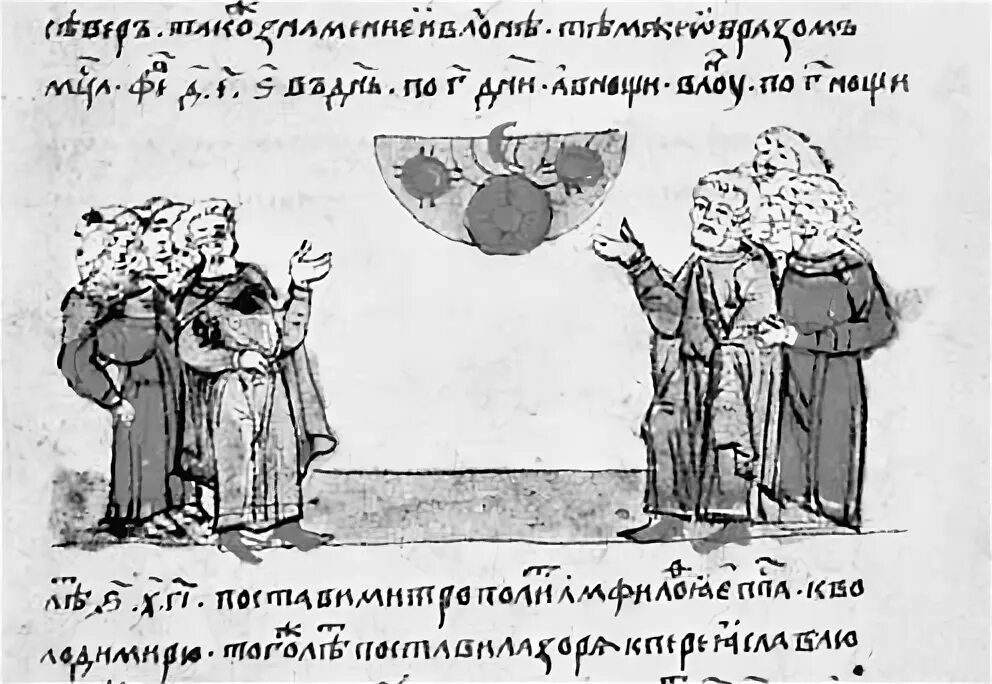 сѣверъ · такоⷤ знамение и в лоⷩ҇ѣ · тѣм же ѡбразомъ
мц҃а · феⷡ҇ · д҃ · г҃ · ѕ҃ въ дн҃ь · по г҃ дн҃и · а в нощи · в лоуⷩ҇ · по г҃ нощи
лѣⷮ · ҂ѕ҃ · х҃ · г҃і · постави митрополиⷮ амфилоѳїа еп҃па · к во
лодимирю · тогоⷤ лѣⷮ постави лазоря к переꙗславлю